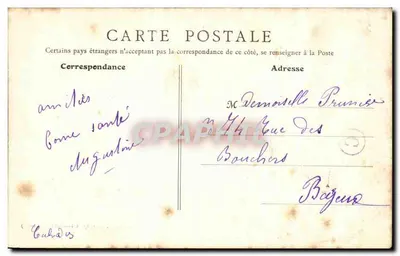 CARTE POSTALE
Certains pays étrangers n'acceptant pas la correspondance de ce côté, se renseigner à la Poste
Correspondance
Adresse
amitiés
bonne santé
Augustine
M Demoiselle Prunier
n 74 Rue des
Bouchers
Bayeux
Calvados
CPAPHIL